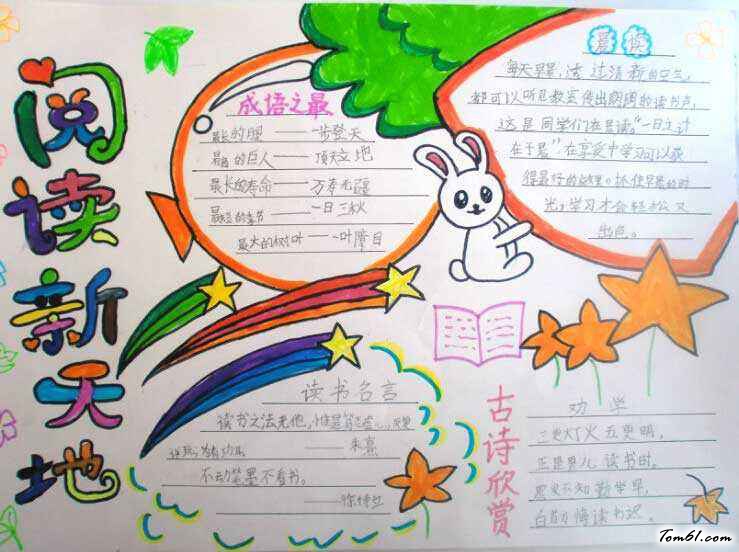 阅读新天地
成语之最
最长的腿——一步登天
最高的巨人——顶天立地
最长的寿命——万寿无疆
最短的季节——一日三秋
最大的树叶——一叶障目
晨读
每天早晨,活 过清新的空气,
都可以听见教室传出朗朗的读书声,
这是同学们在晨读。"一日之计
在于晨"在享受中学习可以获
得最好的效果。抓住早晨的时
光,学习才会轻松又
出色。
读书名言
读书之法无他,惟是笃志虚心,反复
详玩,为有功耳
——朱熹
不动笔墨不看书。
——徐特立
古诗欣赏
劝学
三更灯火五更明,
正是男儿读书时。
黑发不知勤学早,
白首方悔读书迟。
Tom61.com